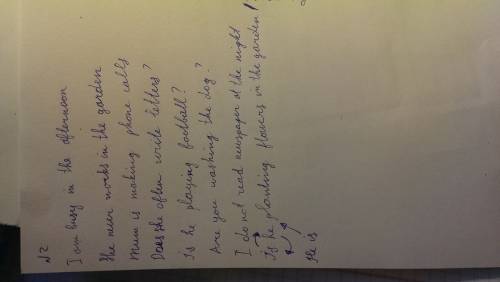 №2
I am busy in the afternoon
She never works in the garden
Mum is making phone calls
Does she often write letters?
Is he playing football?
Are you washing the dog?
I do not read newspaper at the night
Is he planting flowers in the garden
He is